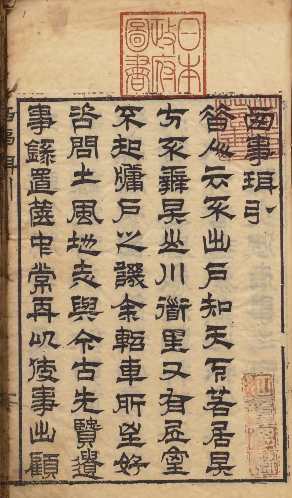 日本政府圖書
西事珥引
昔人云不出戶知天下若居其
方不辨其山川衜里又有居室
不知牖戶之譏余軺車所至好
咨問土風地志與今古先賢遺
事錄置篋中常再以使事出顧